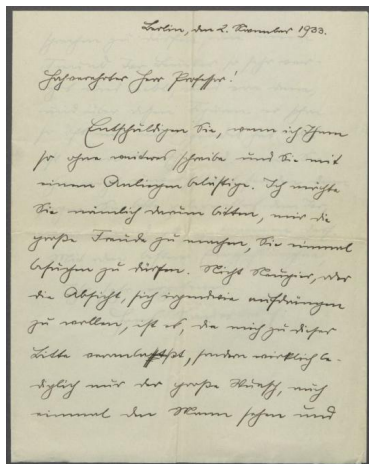 Berlin, den 2. November 1933.
Hochverehrter Herr Professor!
Entschuldigen Sie, wenn ich Ihnen
so ohne weiteres schreibe und Sie mit
einem Anliegen belästige. Ich möchte
Sie nämlich darum bitten, mir die
große Freude zu machen, Sie einmal
besuchen zu dürfen. Nicht Neugier, oder
die Absicht, sich irgendwie aufdrängen
zu wollen, ist es, die mich zu dieser
Bitte veranlasst, sondern wirklich le-
diglich nur der große Wunsch, auch
einmal den Mann sehen und